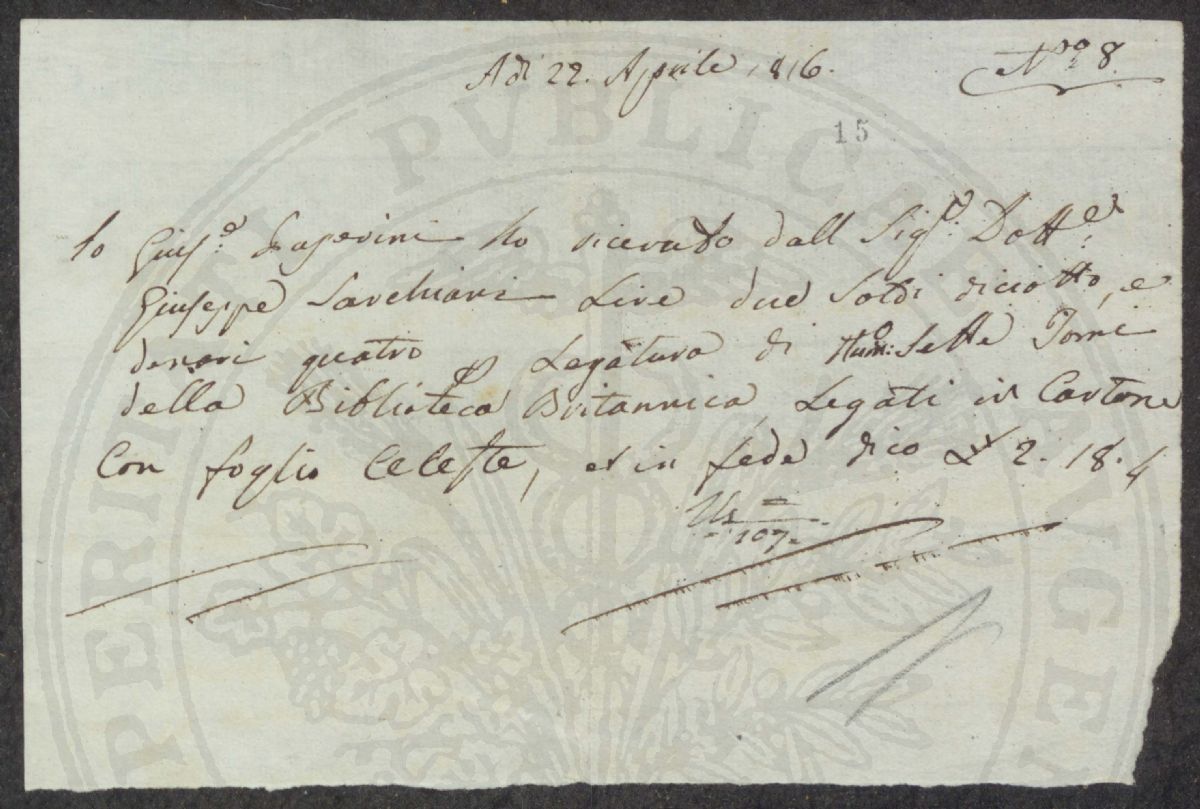 A dì 22. Aprile 1816.
N.º 8.
15
Io Gius.e ho ricevuto dall Sig.r Dott.e
Giuseppe Sarchiani Lire due Soldi diciotto, e
denari quatro p Legatura di Num:o Sette Tomi
della Biblioteca Britannica, Legati in Cartone
Con foglio Celeste, et in fede dico £ 2. 18. 4
107.
PERIAM PVBLICAE AVGE